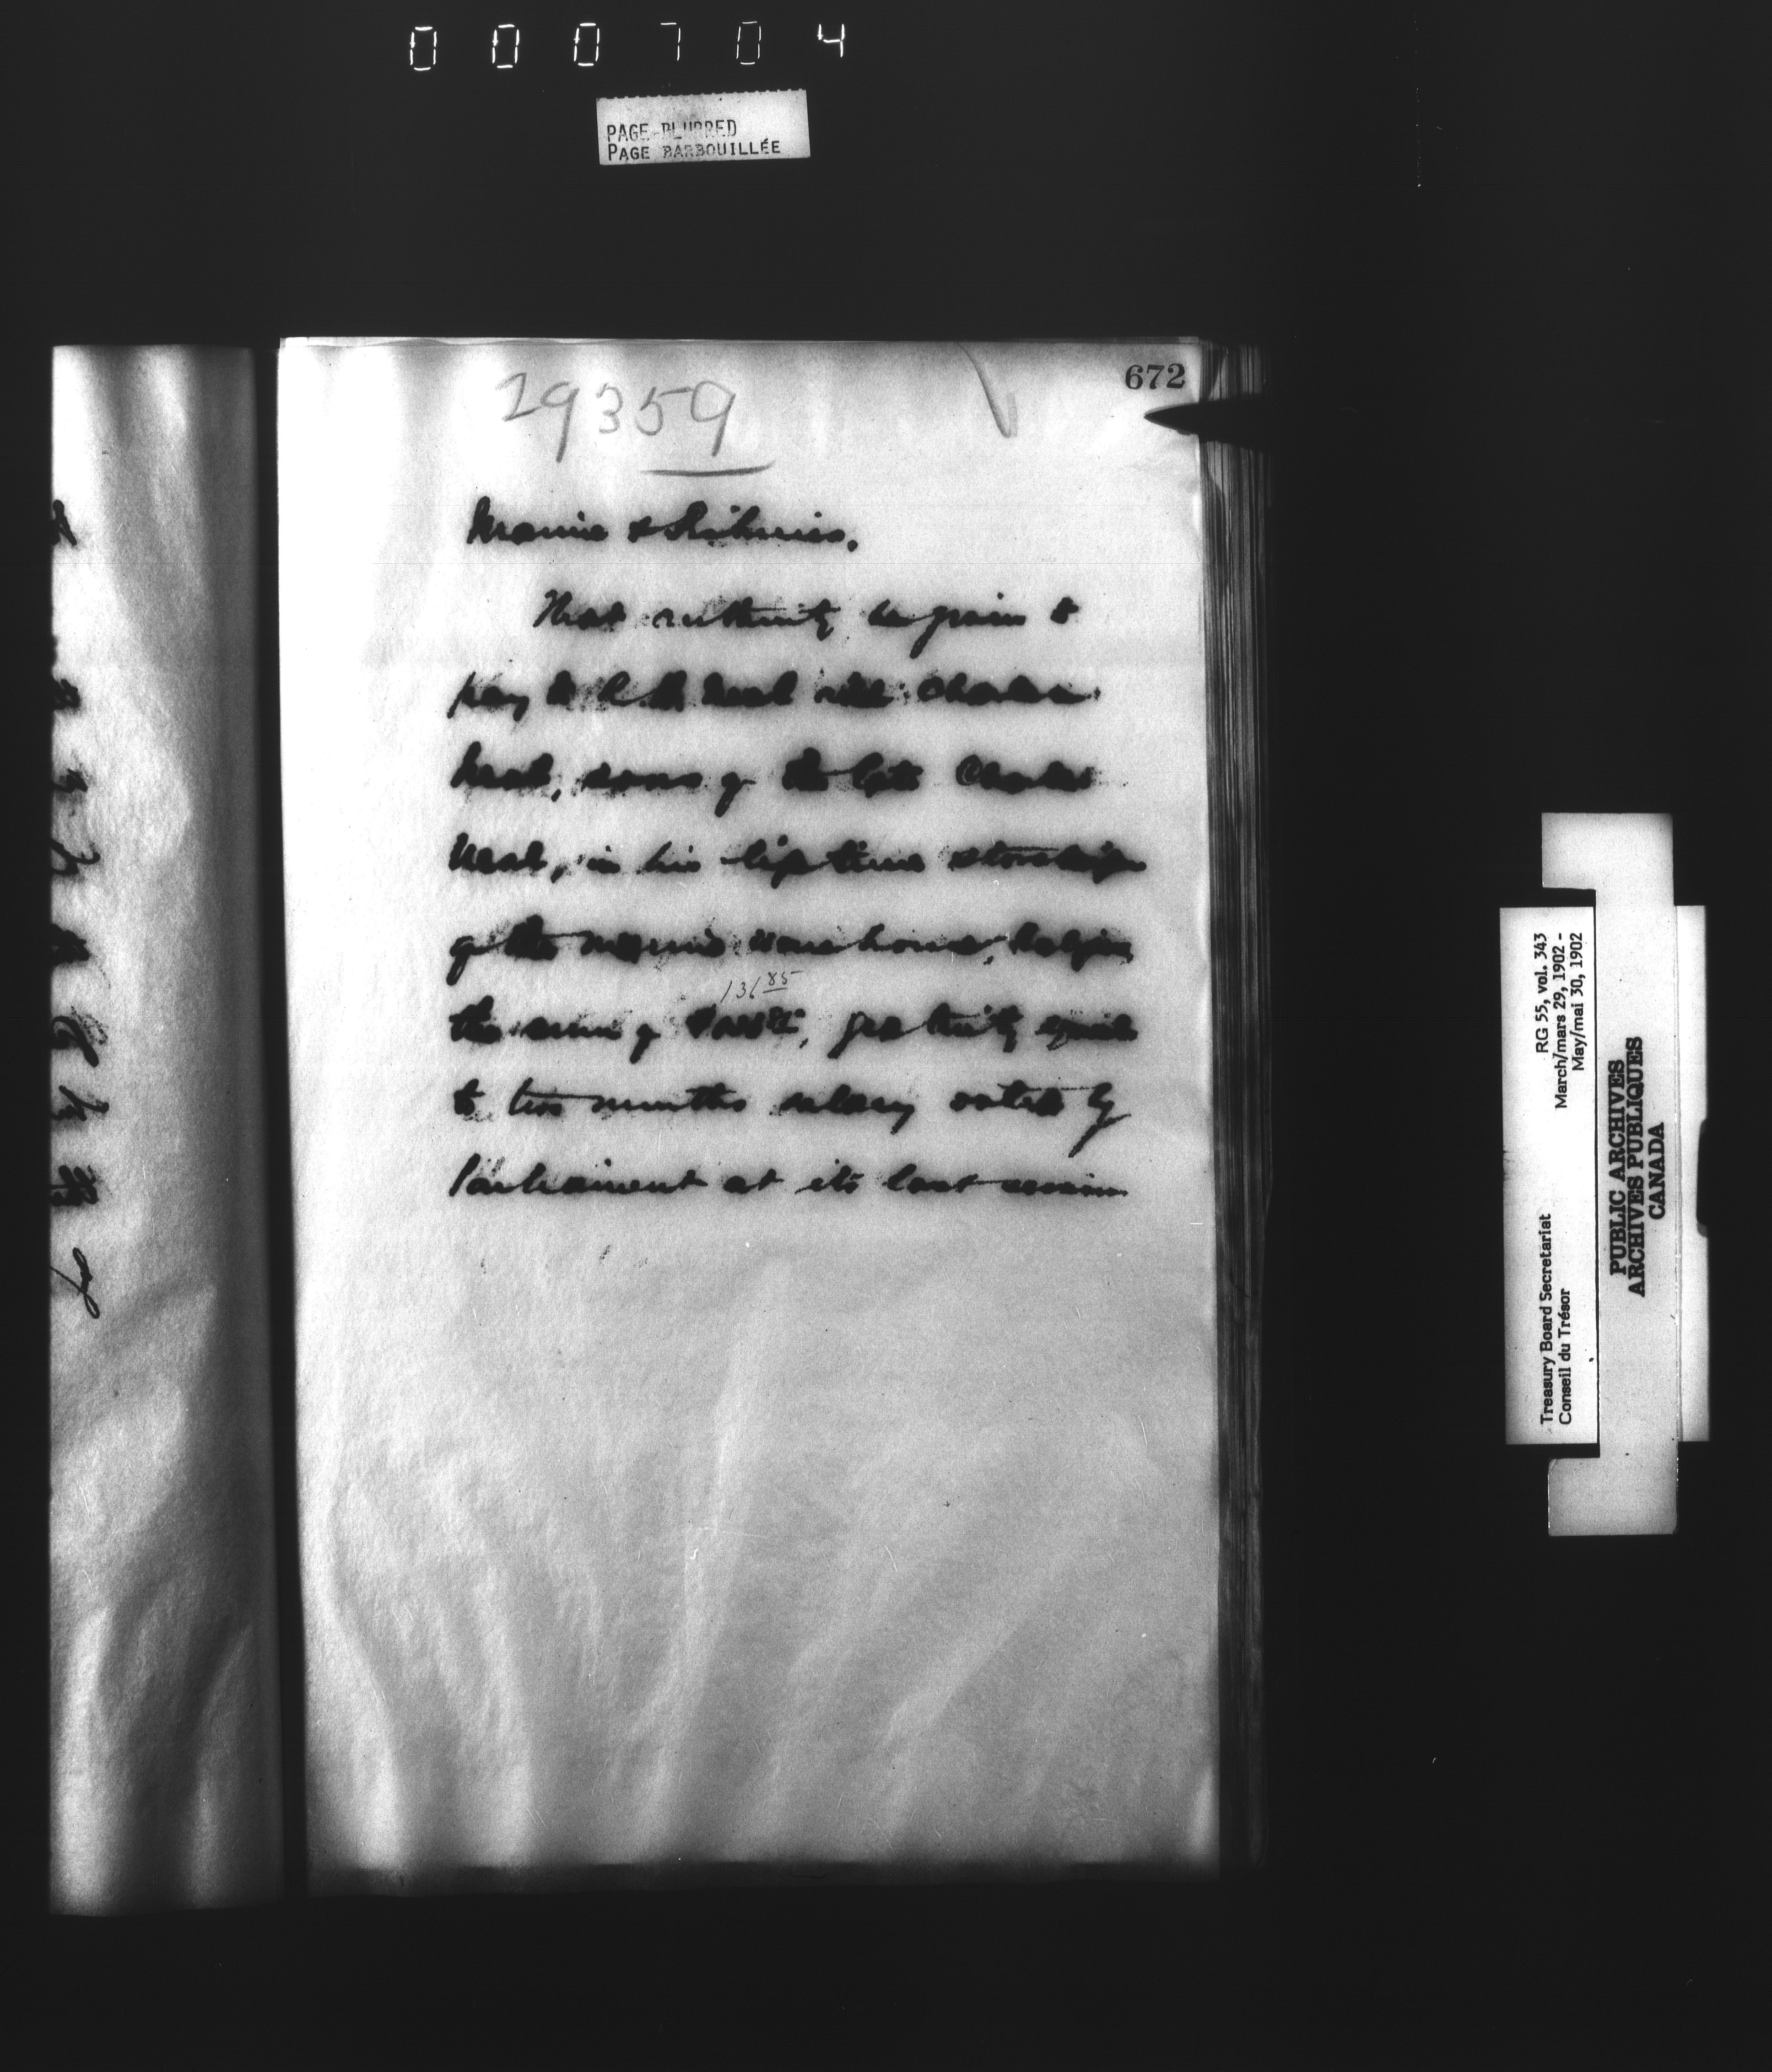 000704
PAGE BLURRED
PAGE BARBOUILLÉE
672
29359
Marine & Fisheries.
That authority be given to
pay to Neal Charles
Neal, sons of the late Charles
Neal, in his life time
of the marine warehouse, Halifax
136 85
the sum of gratuity equal
to two months salary voted by
Parliament at its last session
RG 55, vol. 343
March/mars 29, 1902 -
May/mai 30, 1902
Treasury Board Secretariat
Conseil du Trésor
PUBLIC ARCHIVES
ARCHIVES PUBLIQUES
CANADA